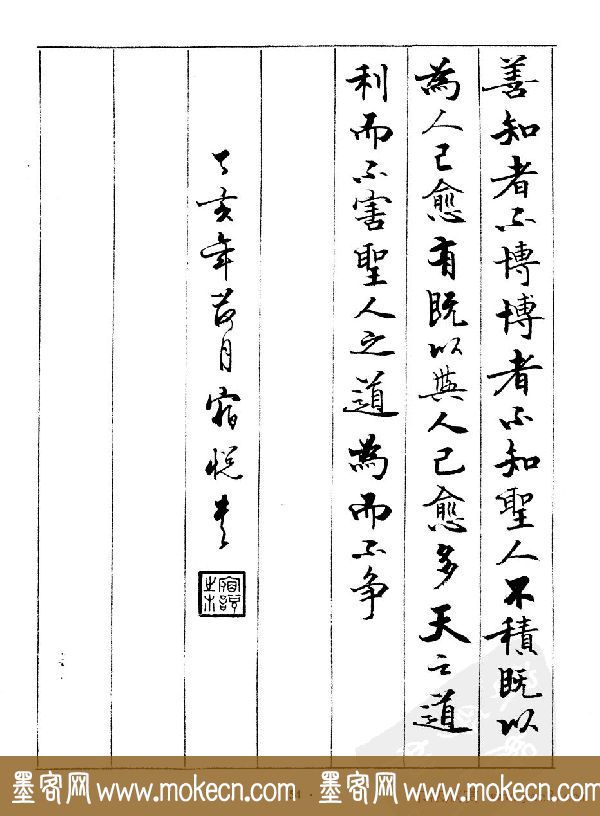 善知者不博博者不知聖人不積既以
為人己愈有既以與人己愈多天之道
利而不害聖人之道為而不争
丁亥年月宿悦書
墨客网 www.mokecn.com 墨客网 www.mokecn.com